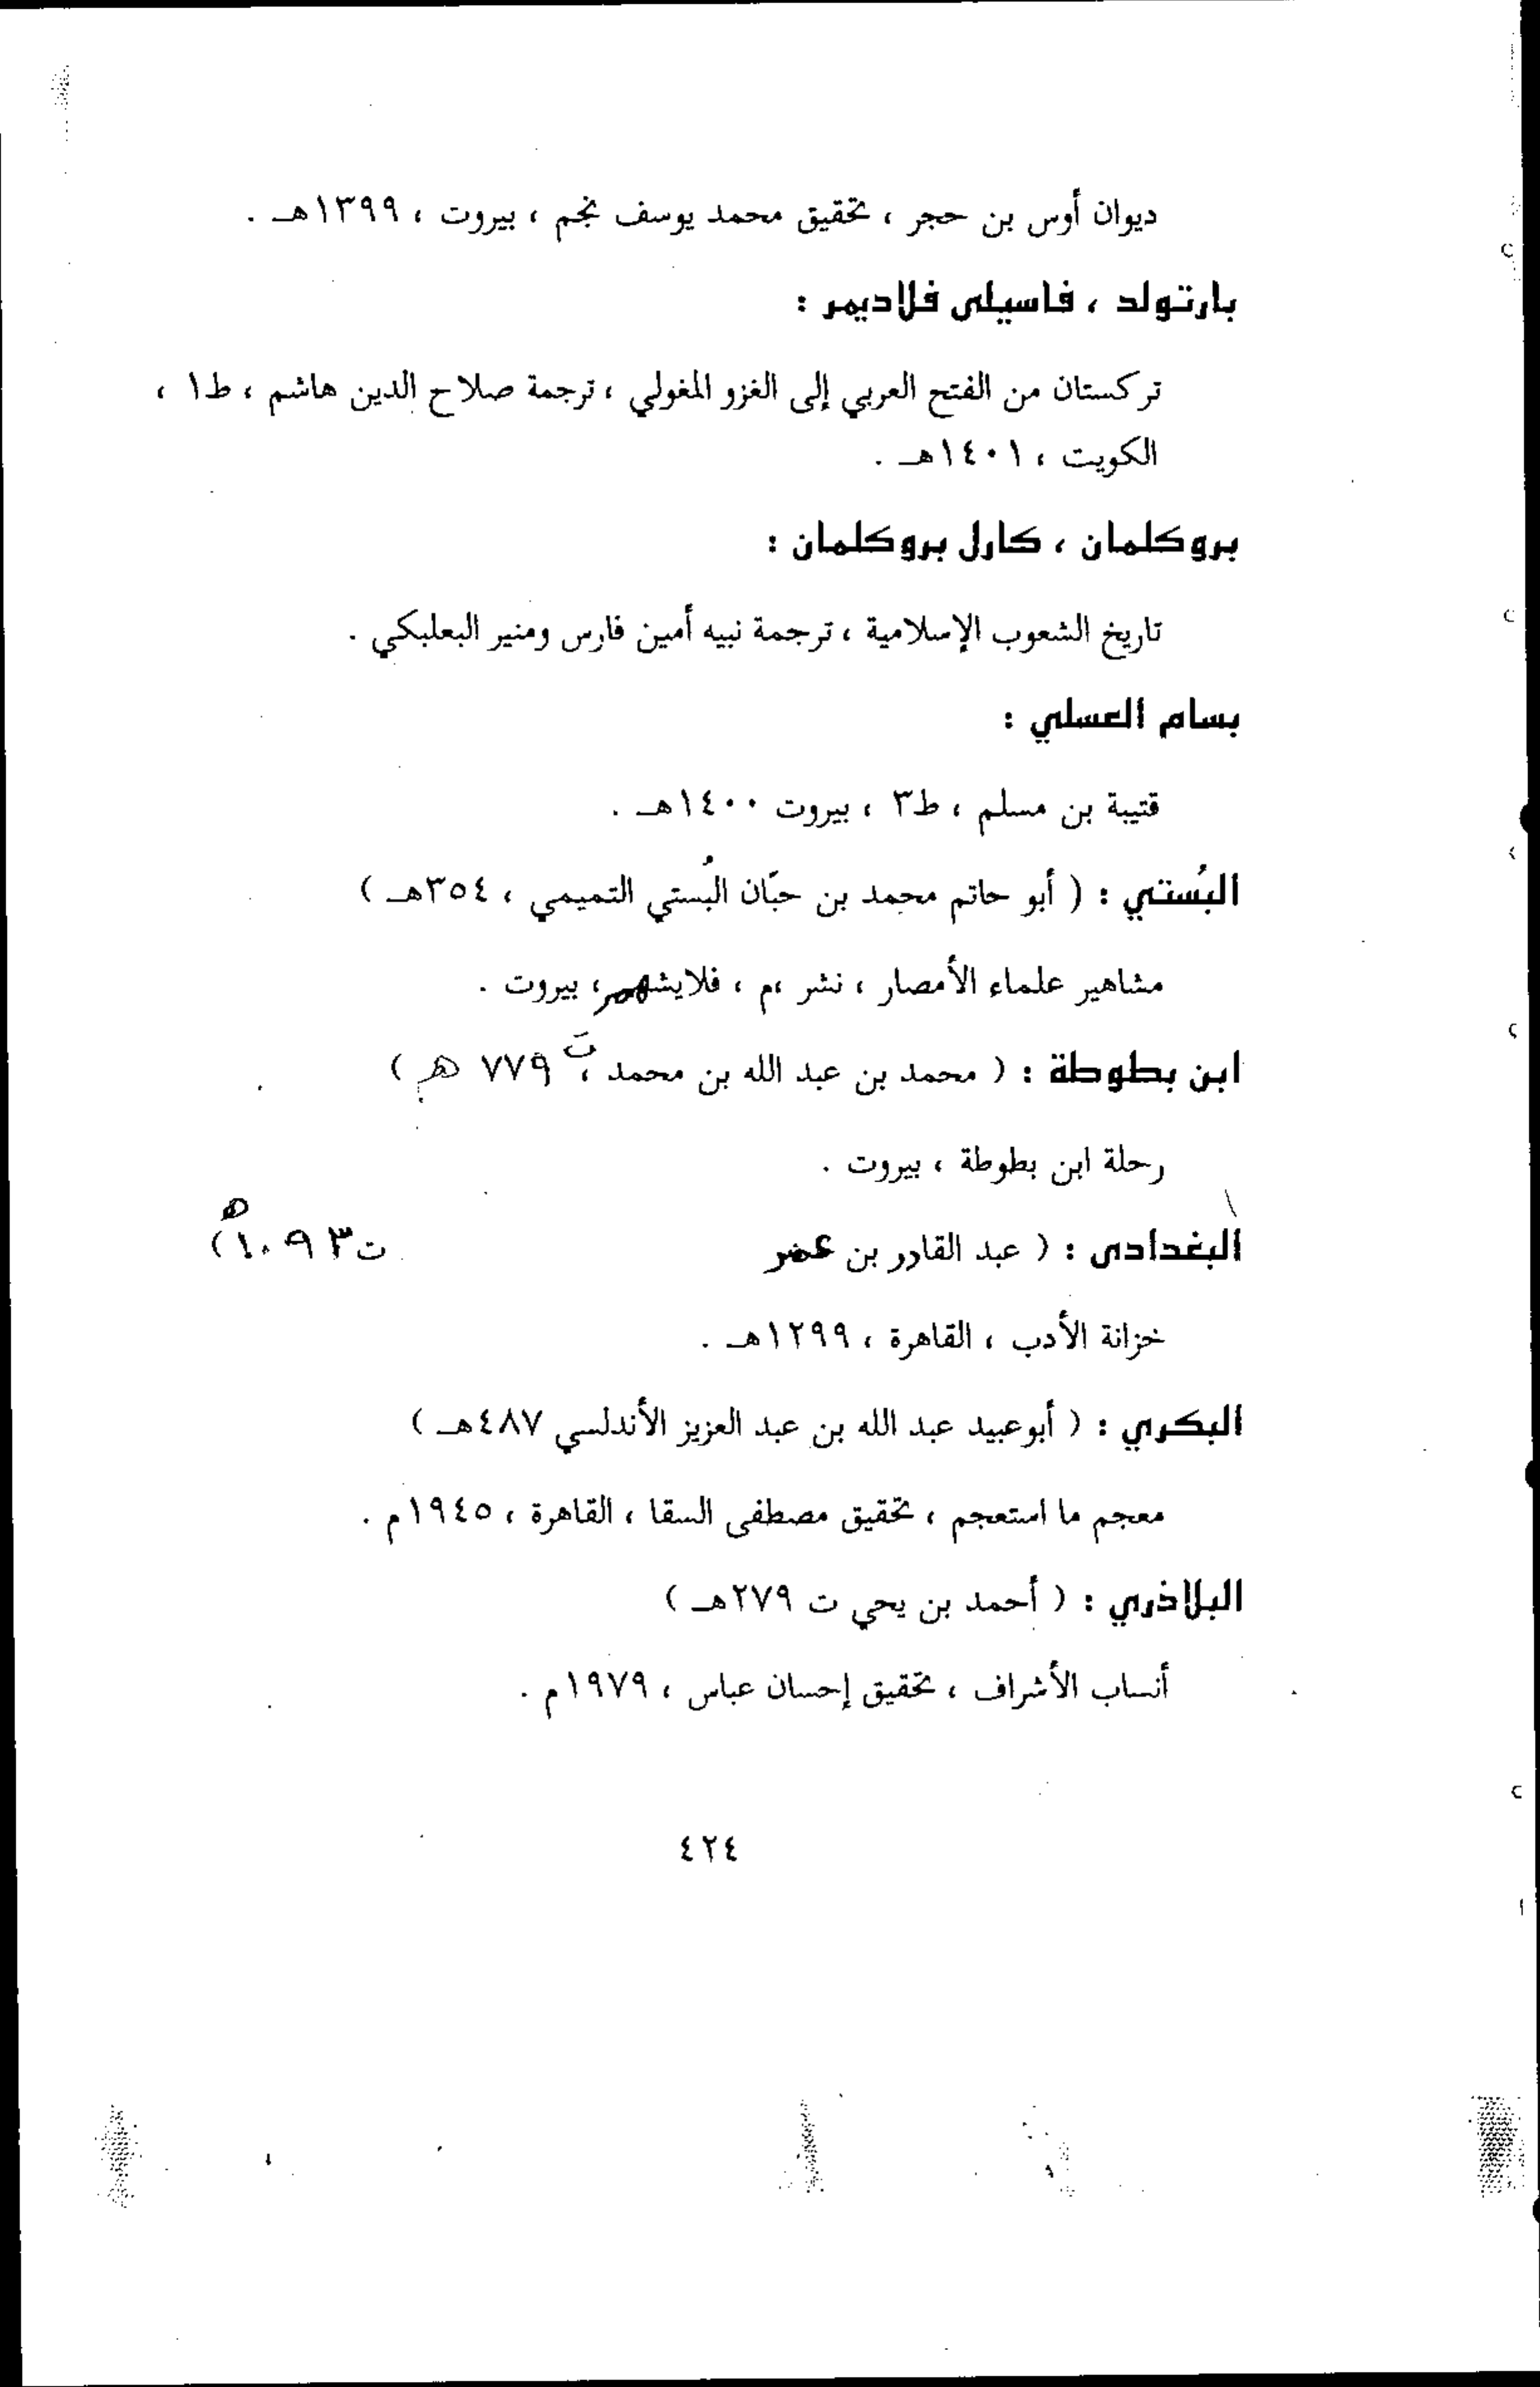 ديوان أوس بن حجر ، تحقيق محمد يوسف نجم ، بيروت ، ١٣٩٩هـ .
بارتولد ، فاسيلى فلاديمر :
تركستان من الفتح العربي إلى الغزو المغولي ، ترجمة صلاح الدين هاشم ، ط١ ،
الكويت ، ١٤٠١هـ .
بروكلمان ، كارل بروكلمان :
تاريخ الشعوب الإسلامية ، ترجمة نبيه أمين فارس ومنير البعلبكي .
بسام العسلي :
قتيبة بن مسلم ، ط٣ ، بيروت ١٤٠٠هـ .
البُستي : ( أبو حاتم محمد بن حبّان البُستي التميمي ، ٣٥٤هـ )
مشاهير علماء الأمصار ، نشر ،م ، فلايشهمر، بيروت .
ابن بطوطة : ( محمد بن عبد الله بن محمد ، ت ٧٧٩ هـ )
رحلة ابن بطوطة ، بيروت .
البغدادى : ( عبد القادر بن عمر ت ١٠٩٣ هـ )
خزانة الأدب ، القاهرة ، ١٢٩٩هـ .
البكري : ( أبوعبيد عبد الله بن عبد العزيز الأندلسي ٤٨٧هـ )
معجم ما استعجم ، تحقيق مصطفى السقا ، القاهرة ، ١٩٤٥م .
البلاذري : ( أحمد بن يحي ت ٢٧٩هـ )
أنساب الأشراف ، تحقيق إحسان عباس ، ١٩٧٩م .
٤٢٤